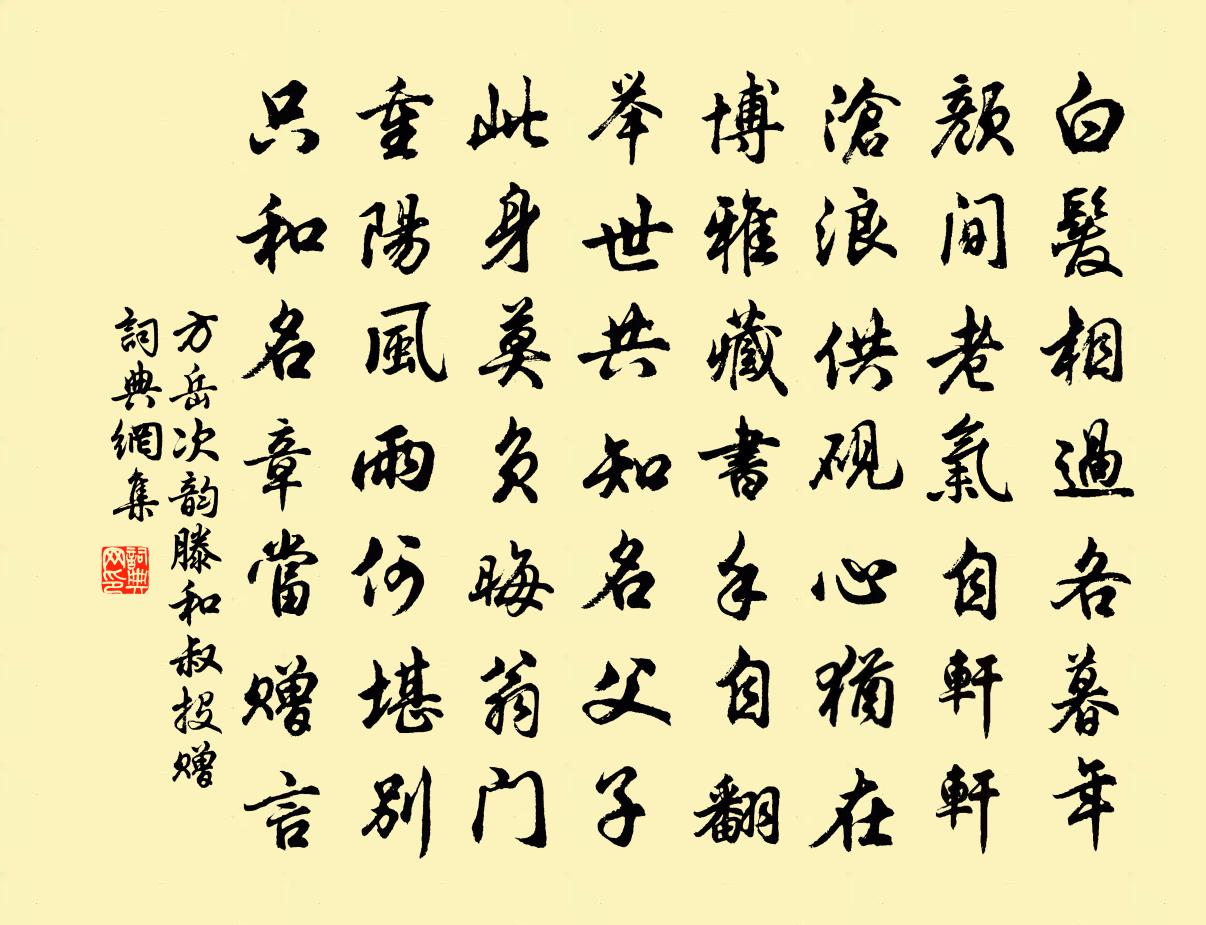 白髮相過各暮年
顏間老氣自軒軒
滄浪供硯心猶在
博雅藏書手自翻
举世共知名父子
此身莫負晦翁门
重陽風雨何堪別
只和名章當赠言
方岳次韵滕和叔投赠
詞典網集
詞典网印